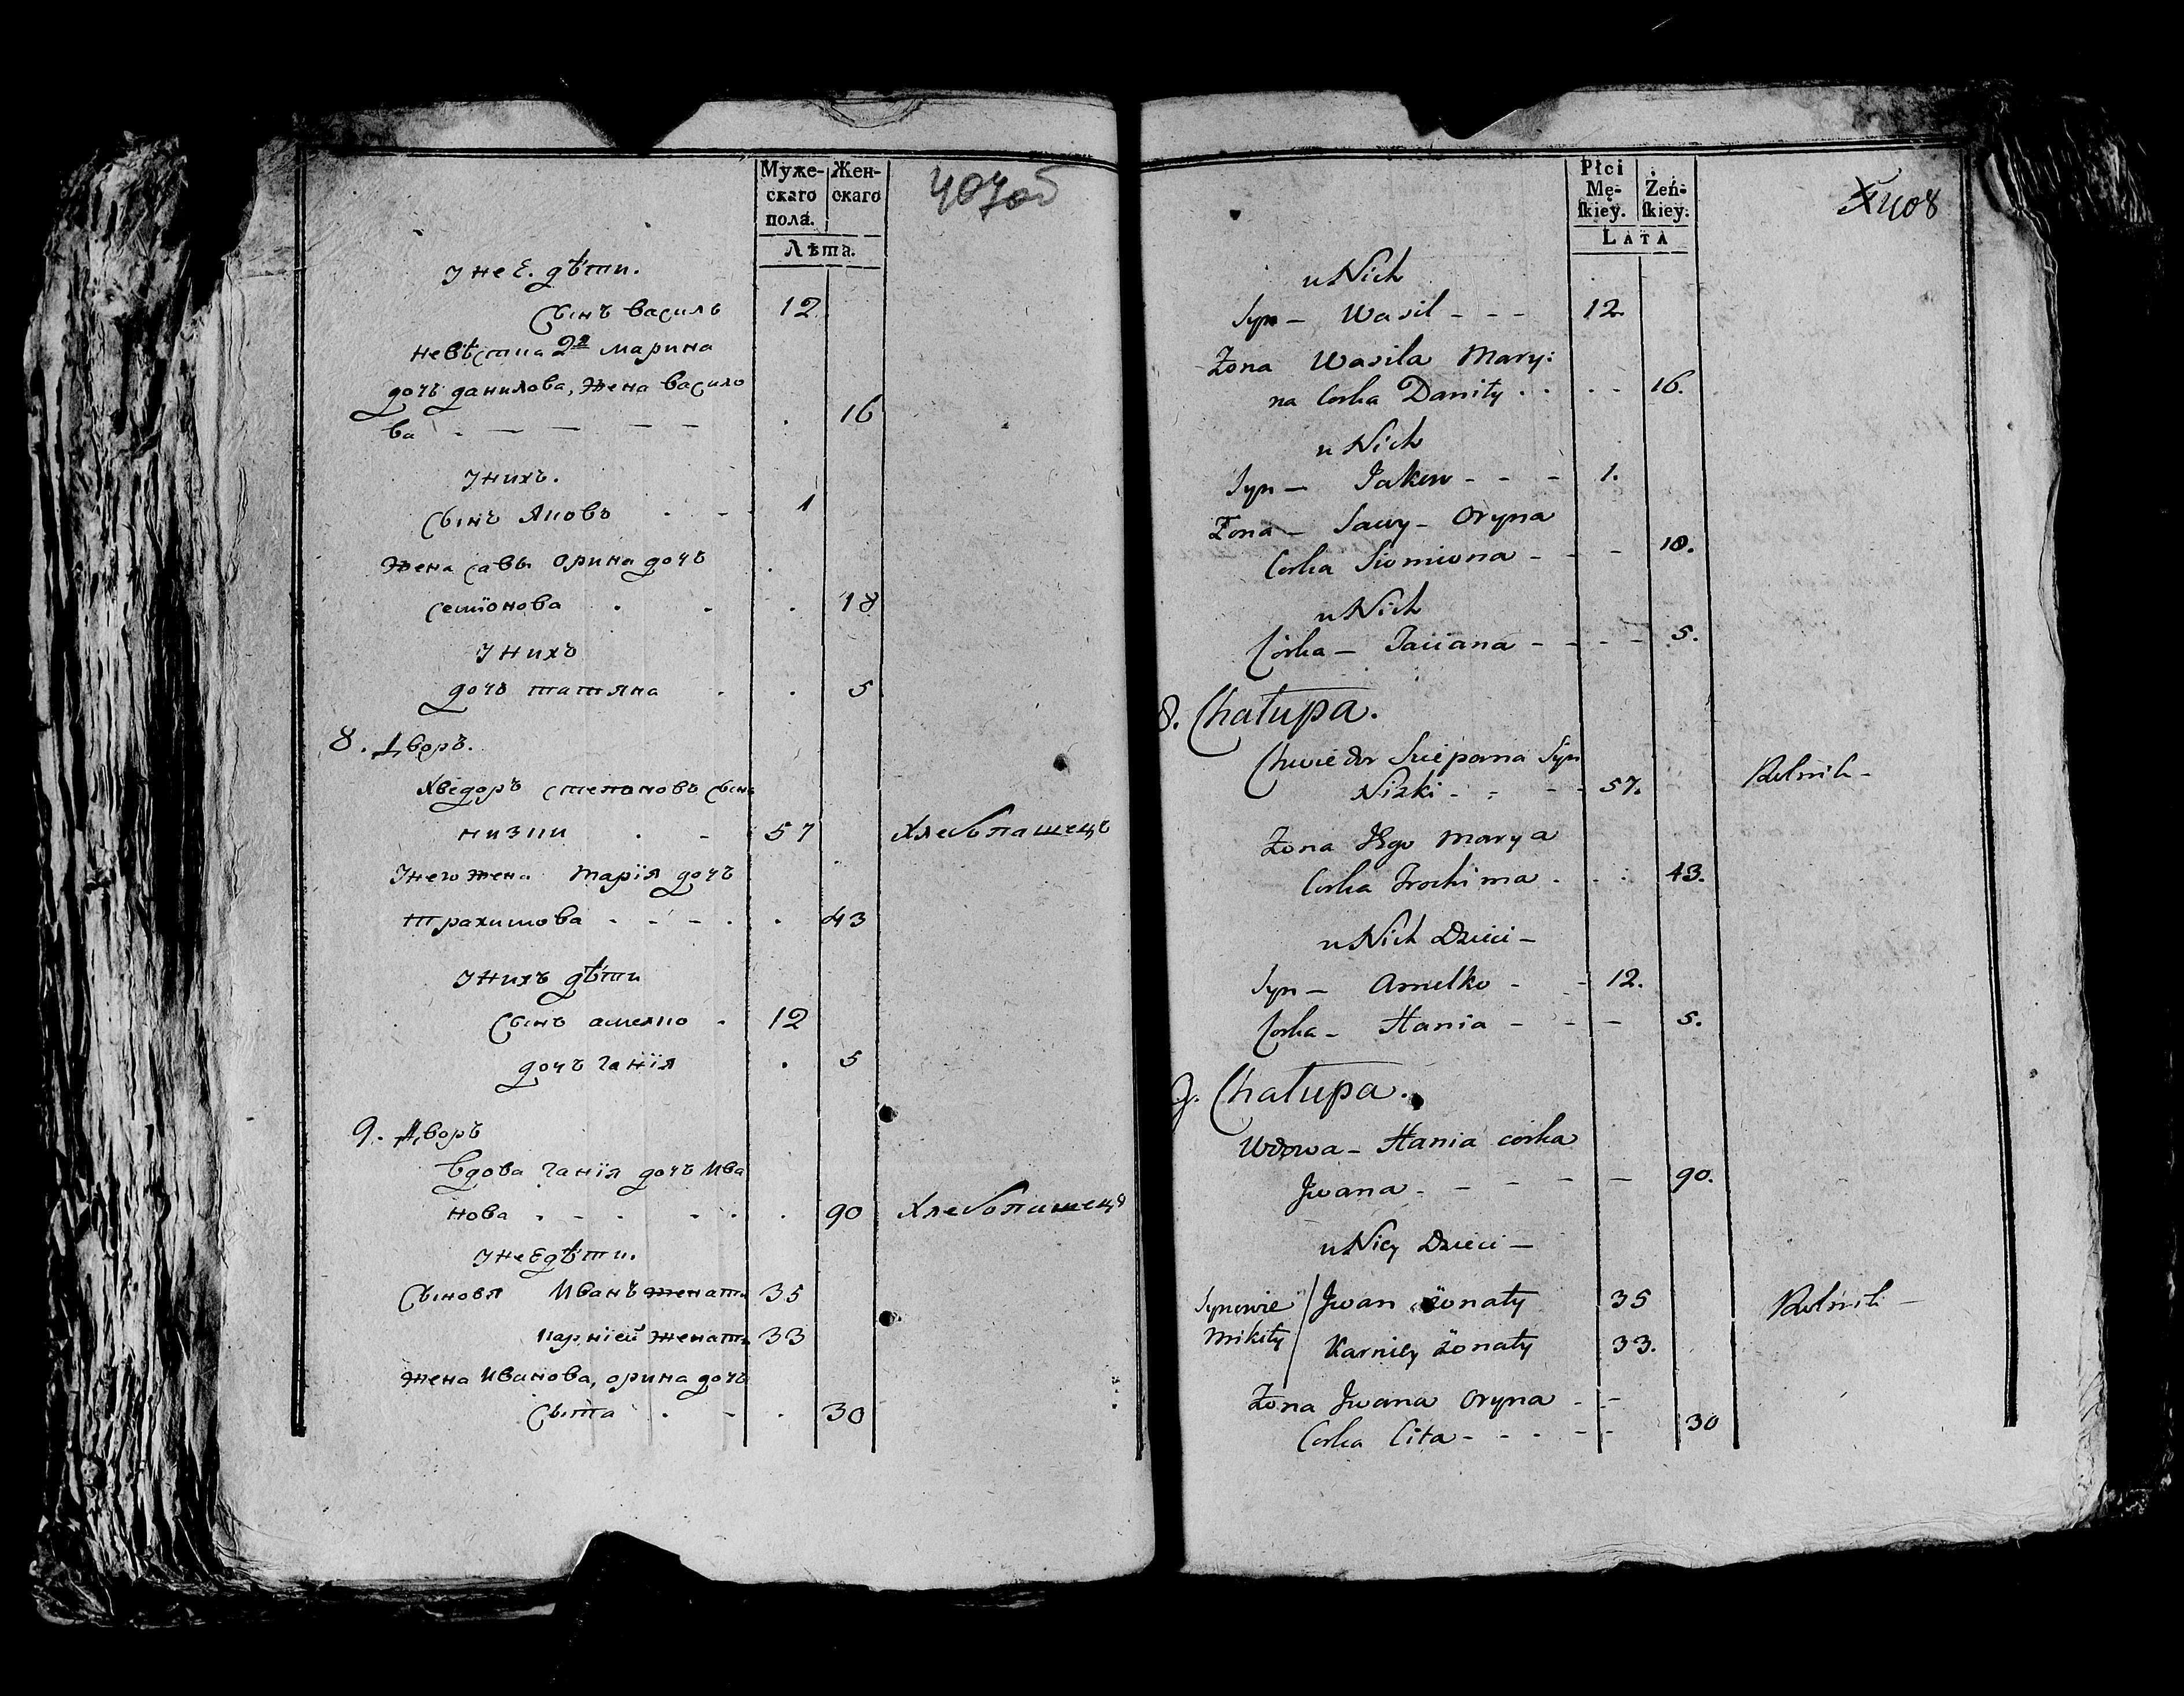 Муже-
скаго
пола.
Жен-
скаго
Лѣта.
407об
У нее дѣти.
Сынъ василь 12
невѣстка 2я марина
дочь данилова, жена василе
ва 16
У нихъ.
Сынъ яковъ 1
жена савы орина дочь
семіонова 18
У нихъ
дочь татяна 5
8. Дворъ.
Хведоръ степановъ сынъ
низки 57 Хлебопашецъ
У него жена марія дочь
трахимова 43
У нихъ дѣти
Сынъ амелко 12
дочь ганія 5
9. Дворъ
Вдова ганія дочь ива
нова 90 Хлебопашецъ
У нее дѣти.
Сыновя иванъ женатъ 35
карнѣй женатъ 33
жена иванова, орина дочь
Сыта 30
Płci
Mę-
skiey.
Żeń-
skiey.
LATA
408
u Nich
Syn – Wasil 12.
Żona Wasila Mary:
na Corka Daniły 16.
u Nich
Syn – Jakow 1.
Żona – Sawy – Oryna
Corka Siomiona 18.
u Nich
Córka – Taciana 5.
8. Chałupa.
Chwiedor Sciepana Syn
Nizki 57. Rolnik –
Żona Jego Marya
Corka Trochima 43.
u Nich Dzieci –
Syn – Amelko 12.
Corka – Hania 5.
9. Chałupa.
Wdowa – Hania corka
Jwana 90.
u Niey Dzieci –
Synowie Jwan żonaty 35 Rolnik –
Mikity Karniey żonaty 33.
Żona Jwana Oryna
Corka Cita 30